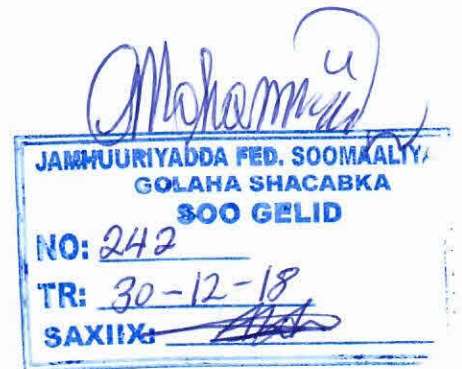 Mohammed
JAMHUURIYADDA FED. SOOMAALIYA
GOLAHA SHACABKA
SOO GELID
NO: 242
TR: 30-12-18
SAXIIX: